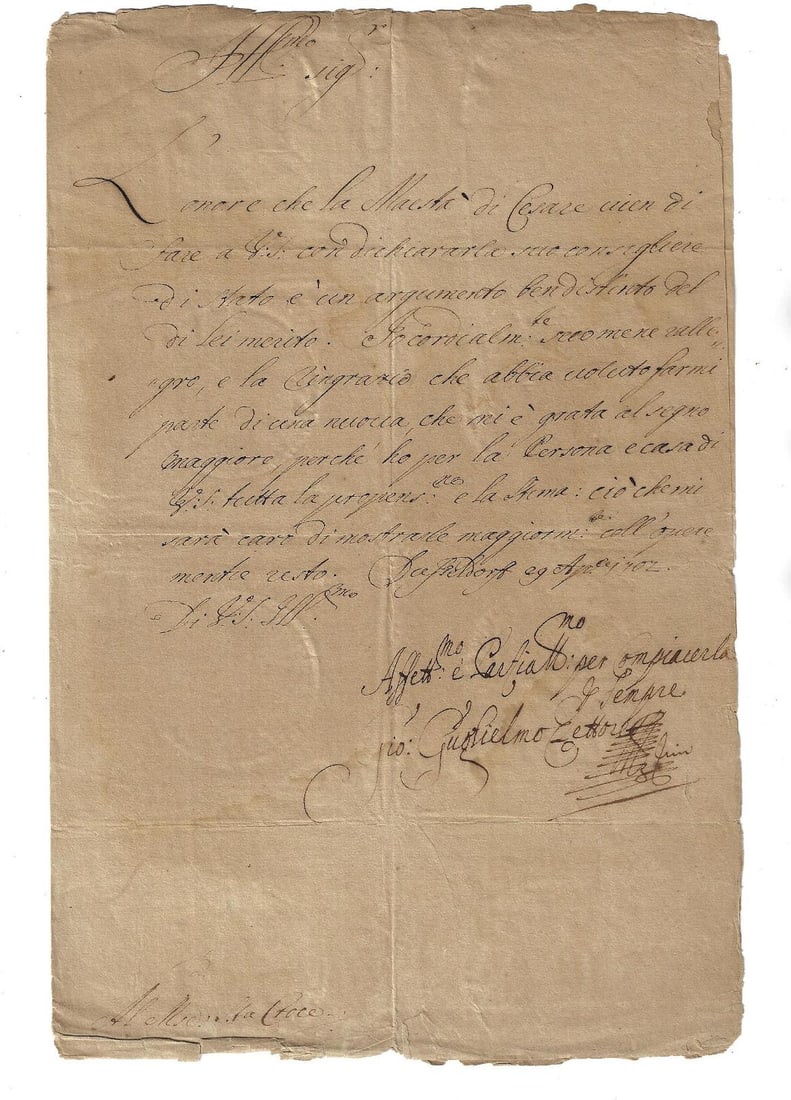 Ill.mo Sig.r:
L'onore che la Maestà di Cesare vien di
fare a V.S. con dichiararla suo consigliere
di stato è un argumento ben distinto del
di Lei merito. Io cordialm.te seco me ne ralle„
„gro, e la ringrazio che abbia voluto farmi
parte di una nuova, che mi è grata al segno
maggiore, perche ho per la Persona e casa di
V.S. tutta la propens.ne e la stima: ciò che mi
sarà caro di mostrarle maggiorm.te coll'opere
mentre resto. 29 Ap.le 1702.
Di V.S. Ill.mo
Affett.mo e per
Sempre
Gio: Guglielmo Elettore
Al Croce